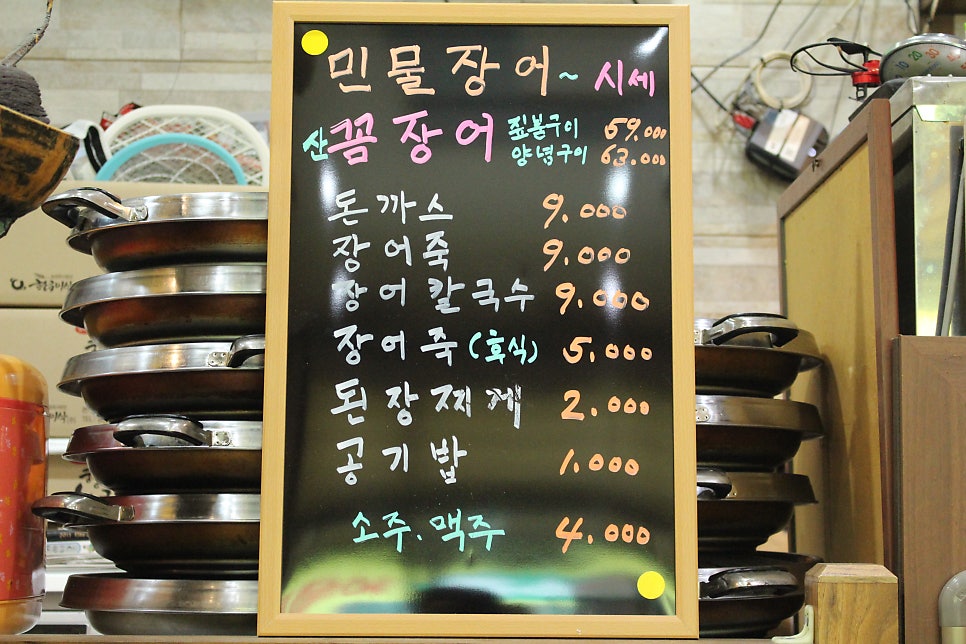 민물장어~ 시세
산꼼장어 짚불구이 59.000
양념구이 63.000
돈까스 9.000
장어죽 9.000
장어칼국수 9.000
장어죽(후식) 5.000
된장찌게 2.000
공기밥 1.000
소주.맥주 4.000